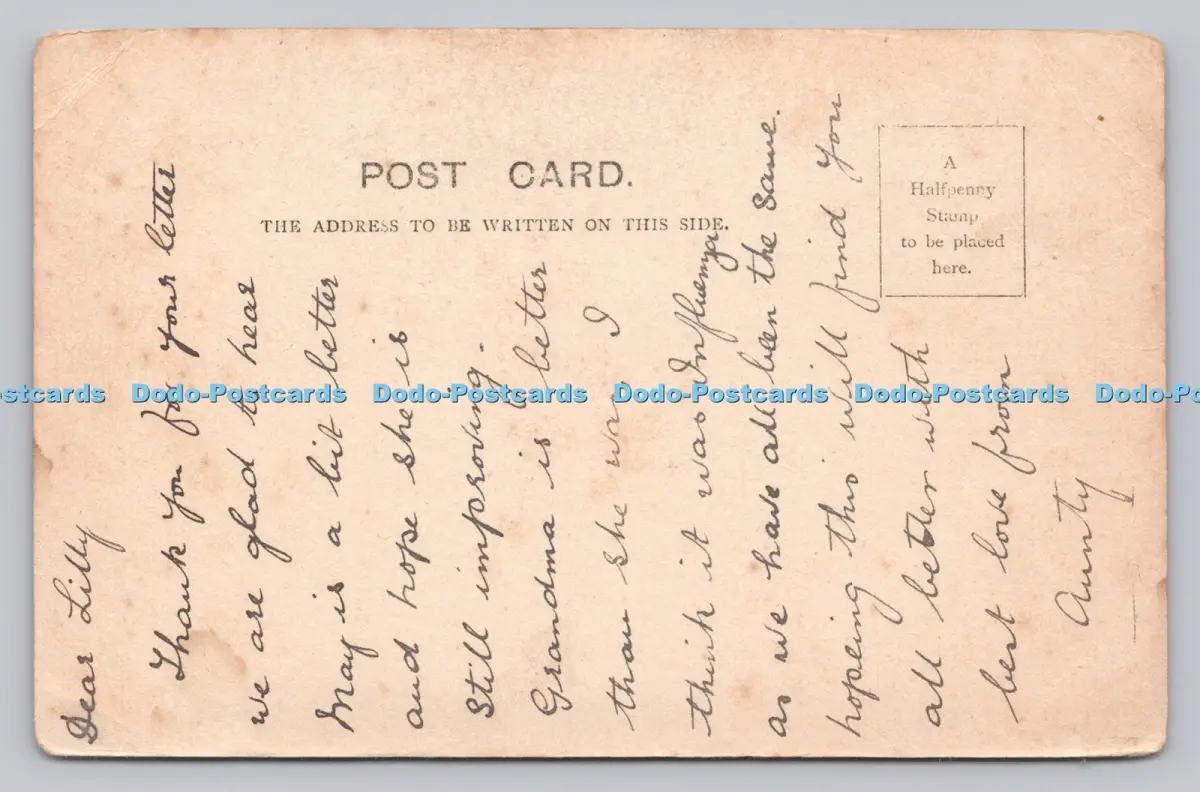 POST CARD.
THE ADDRESS TO BE WRITTEN ON THIS SIDE.
A
Halfpenny
Stamp
to be placed
here.
Dear Lilly
Thank you for your letter
we are glad to hear
May is a bit better
and hope she is
still improving.
Grandma is better
than she was I
think it was Influenza
as we have all been the same.
hopeing this will find you
all better with
best love from
Aunty
Dodo-Postcards Dodo-Postcards Dodo-Postcards Dodo-Postcards Dodo-Postcards Dodo-Postcards